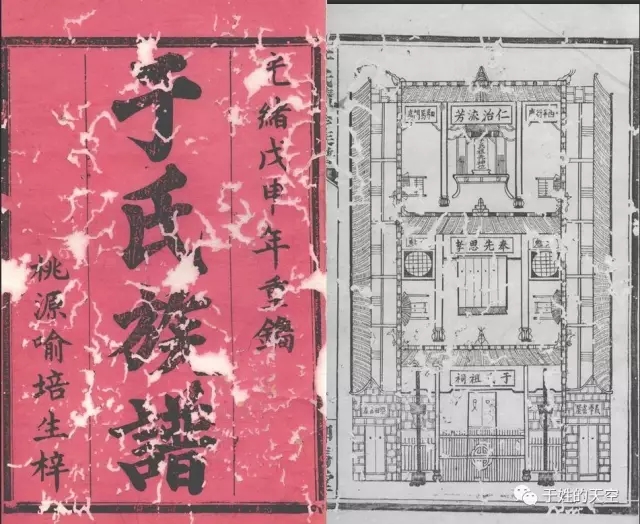 光緒戊申年重鐫
于氏族譜
桃源喻培生梓
仁治流芳
奉先思孝
于祖祠
于姓的天空